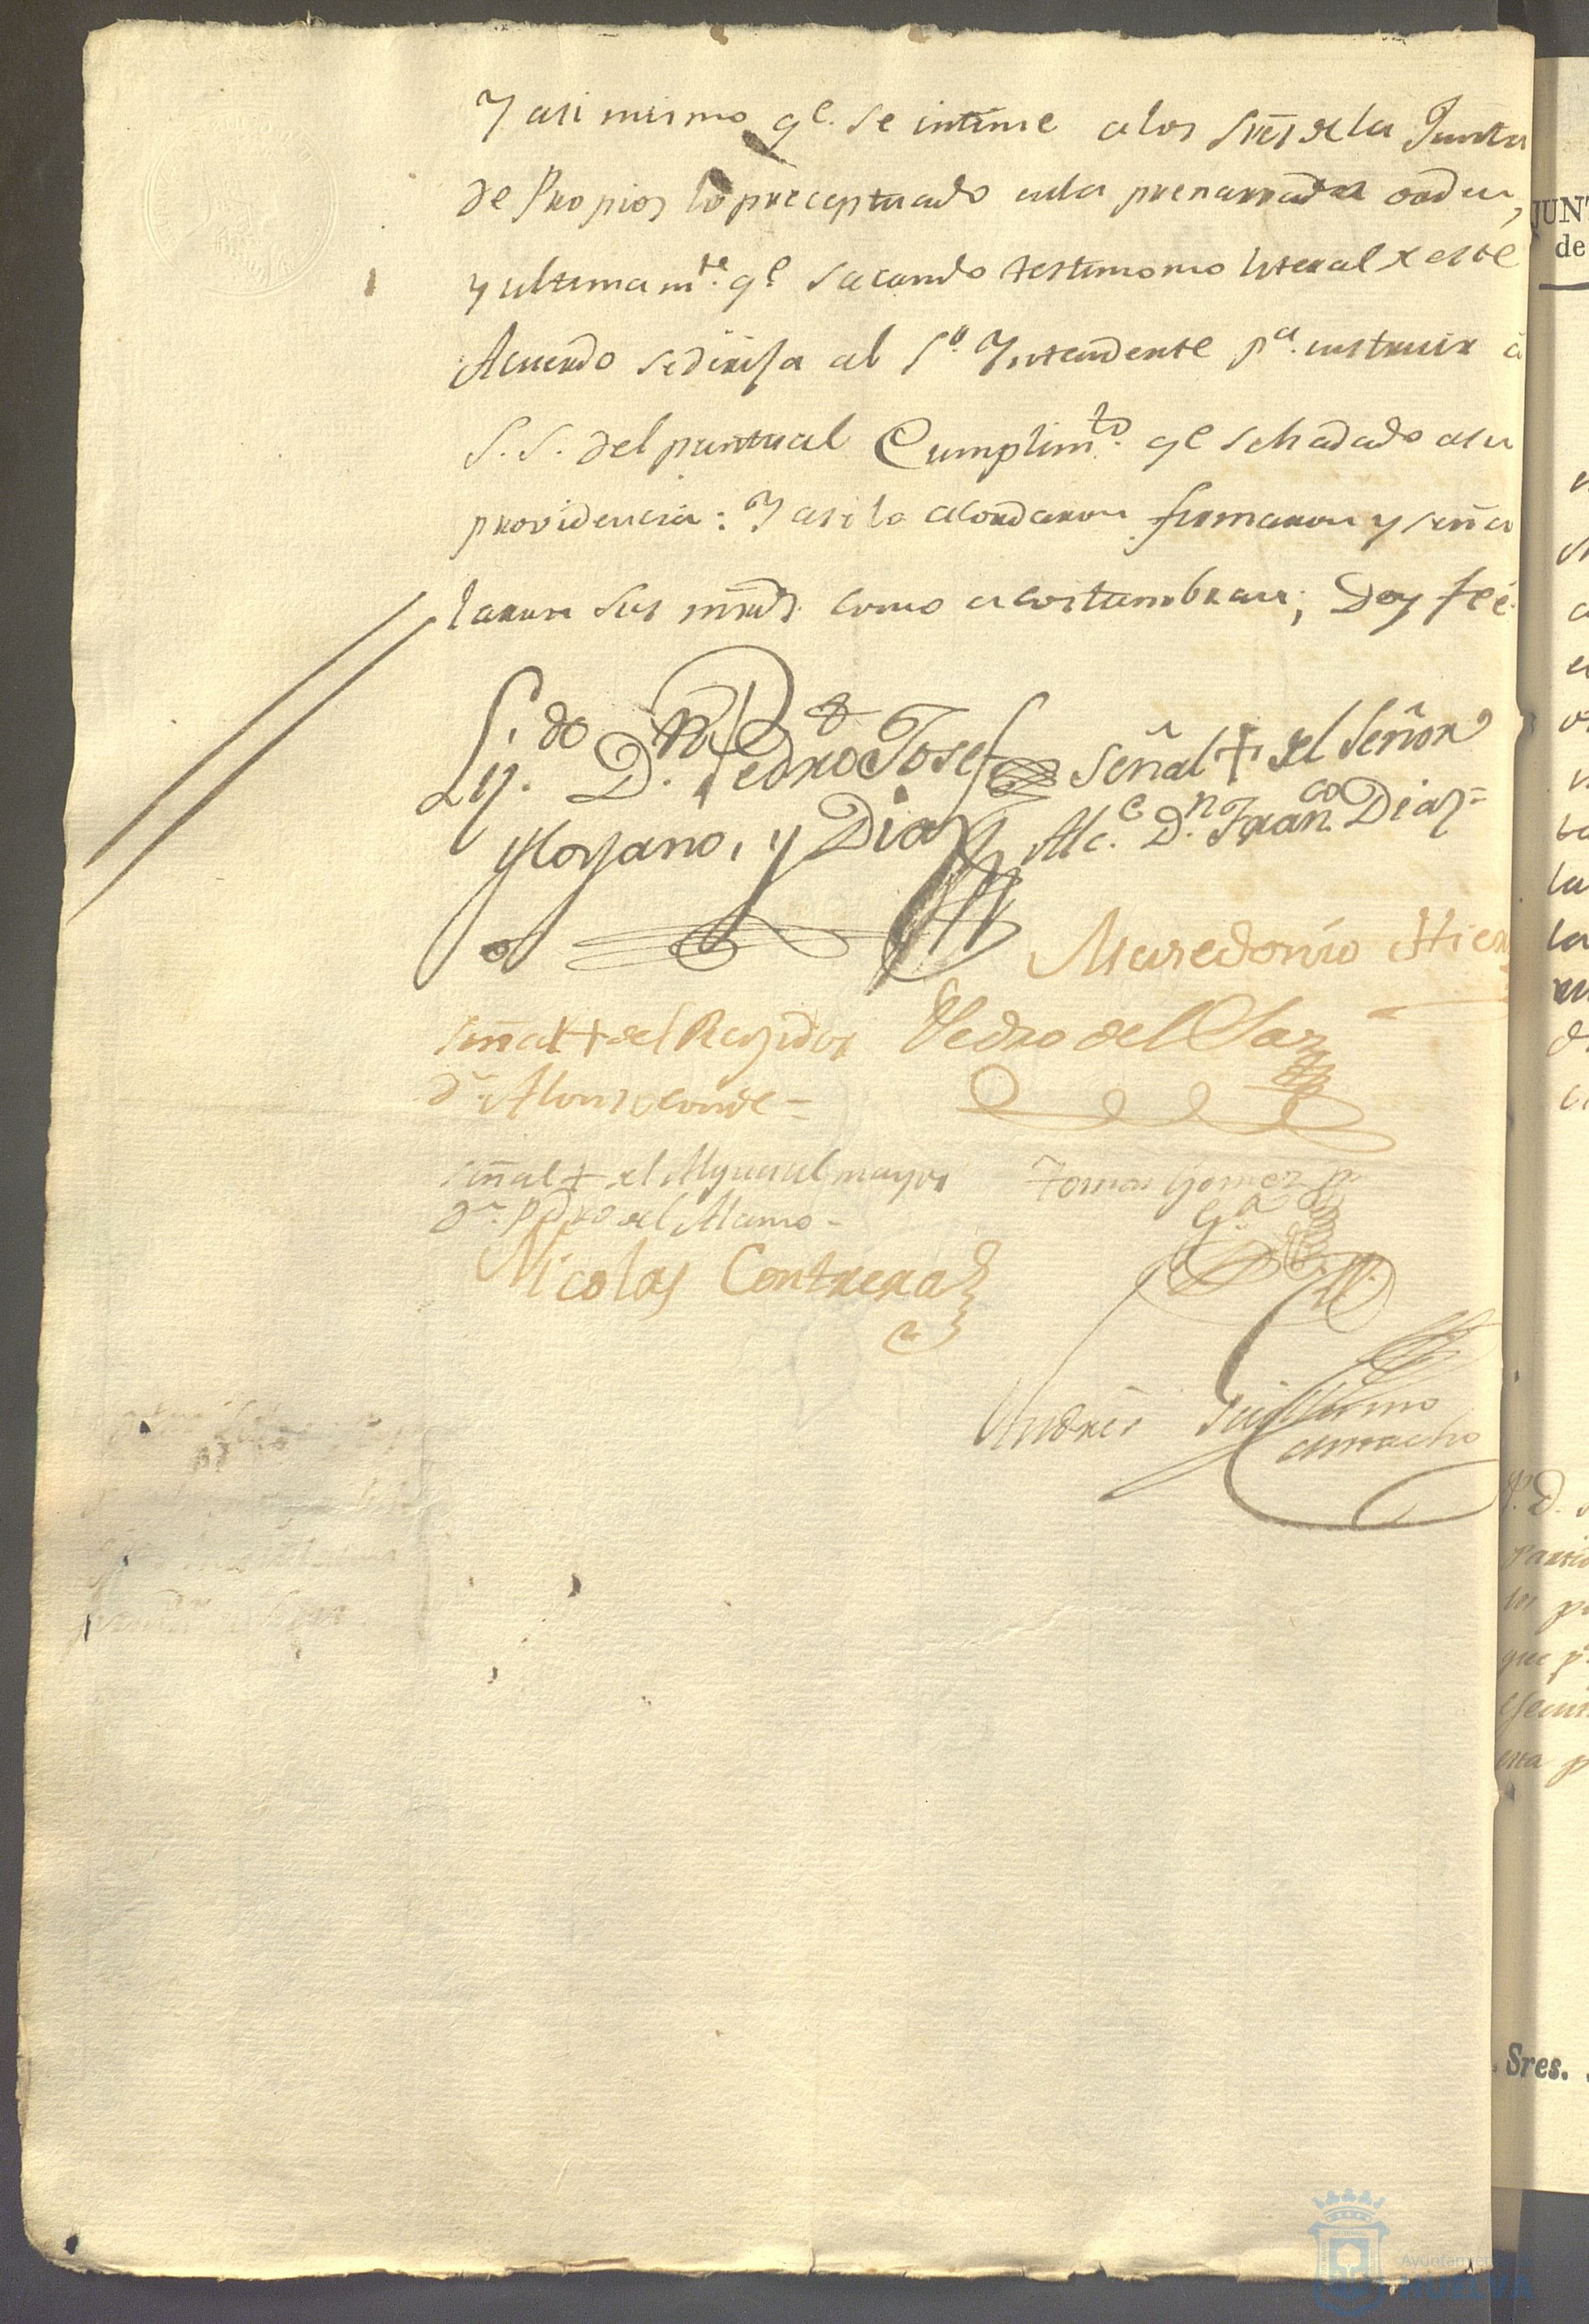 Y asi mismo qe. se intime a los Sres de la Junta
de Propios lo preceptuado en la prenarrada orden,
y ultimamte. qe sacando testimonio literal de este
Acuerdo se dirija al Sor. Yntendente pa. instruir a
S. S. del puntual Cumplimto. qe se ha dado a su
providencia: Y asi lo acordaron firmaron y seña
laron sus mrds. como acostumbran; Doy feé.
Lizdo. Dn. Pedro Josef
Moyano, y Diaz
Señal + del Señor
Alce. Dn. Franco. Diaz=
Macedonio
Señal + del Regidor
dn. Alonso Conde =
Pedro del Saz
Señal + del Alguacil mayor
dn. Pedro del Alamo -
Tomas Gomez
Nicolas Contreras
Andrés Guillermo
Camacho
JUNT
de
Sres.
Ayuntamiento
HUELVA